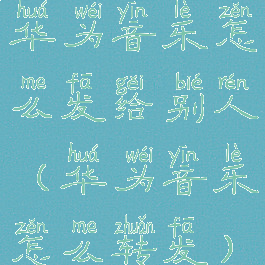 huá wéi yīn lè zěn
华为音乐怎
me fā gěi bié rén
么发给别人
huá wéi yīn lè
（华为音乐
zěn me zhuǎn fā
怎么转发）